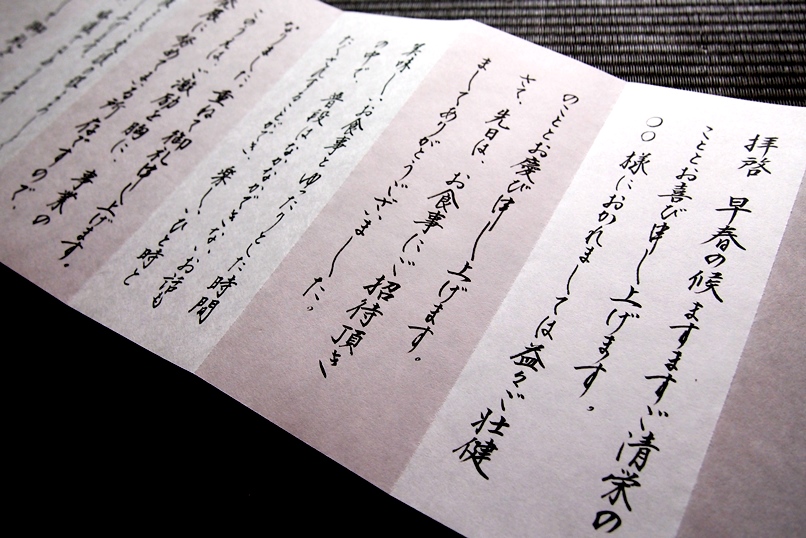 拝啓 早春の候 ますますご清栄の
こととお喜び申し上げます。
〇〇様におかれましては益々ご壮健
のこととお慶び申し上げます。
さて、先日は、お食事にご招待頂き
ましてありがとうございました。
美味しいお食事とゆったりとした時間
の中で、普段はなかなかできないお話も
たくさんすることができ、楽しいひと時と
なりました。重ねて御礼申し上げます。
このうえはご激励を胸に、事業の
発展に努めてまいる所存ですので、